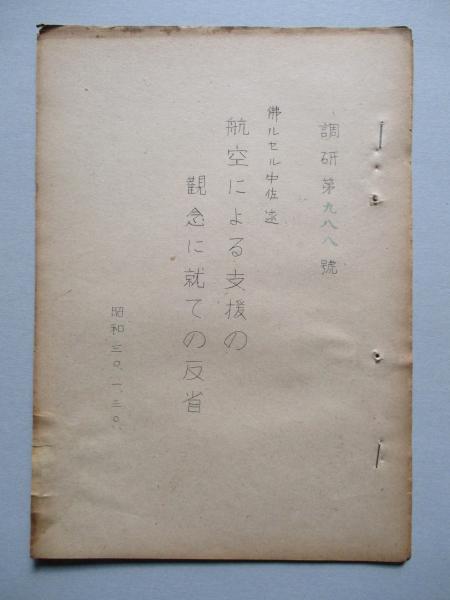 調研第九八八號
佛ルセル中佐述
航空による支援の
観念に就ての反省
昭和三〇、一、三〇、